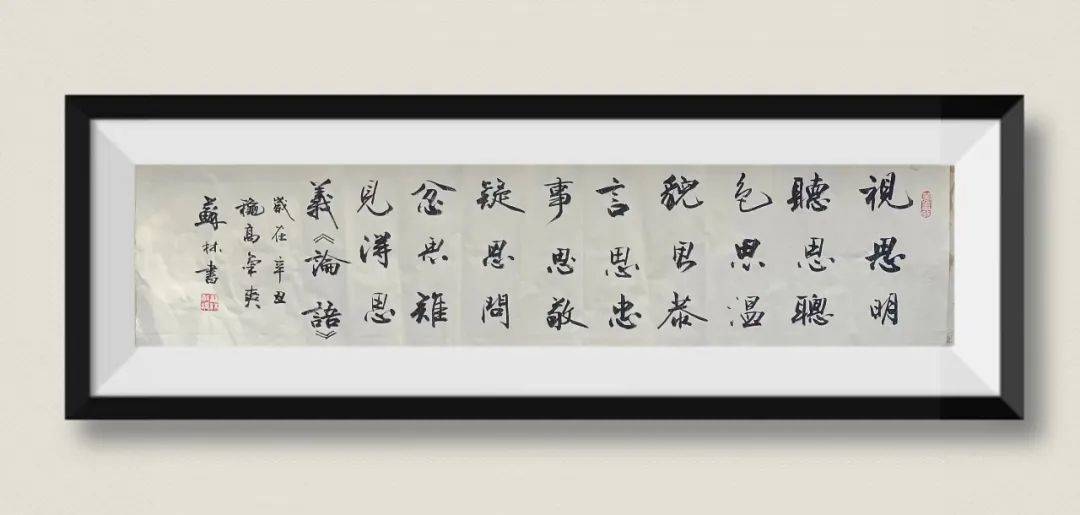 視思明
聽思聰
色思温
貌思恭
言思忠
事思敬
疑思問
忿思難
見得思
義《論語》
歲在辛丑
穐高氣爽
蘇林書